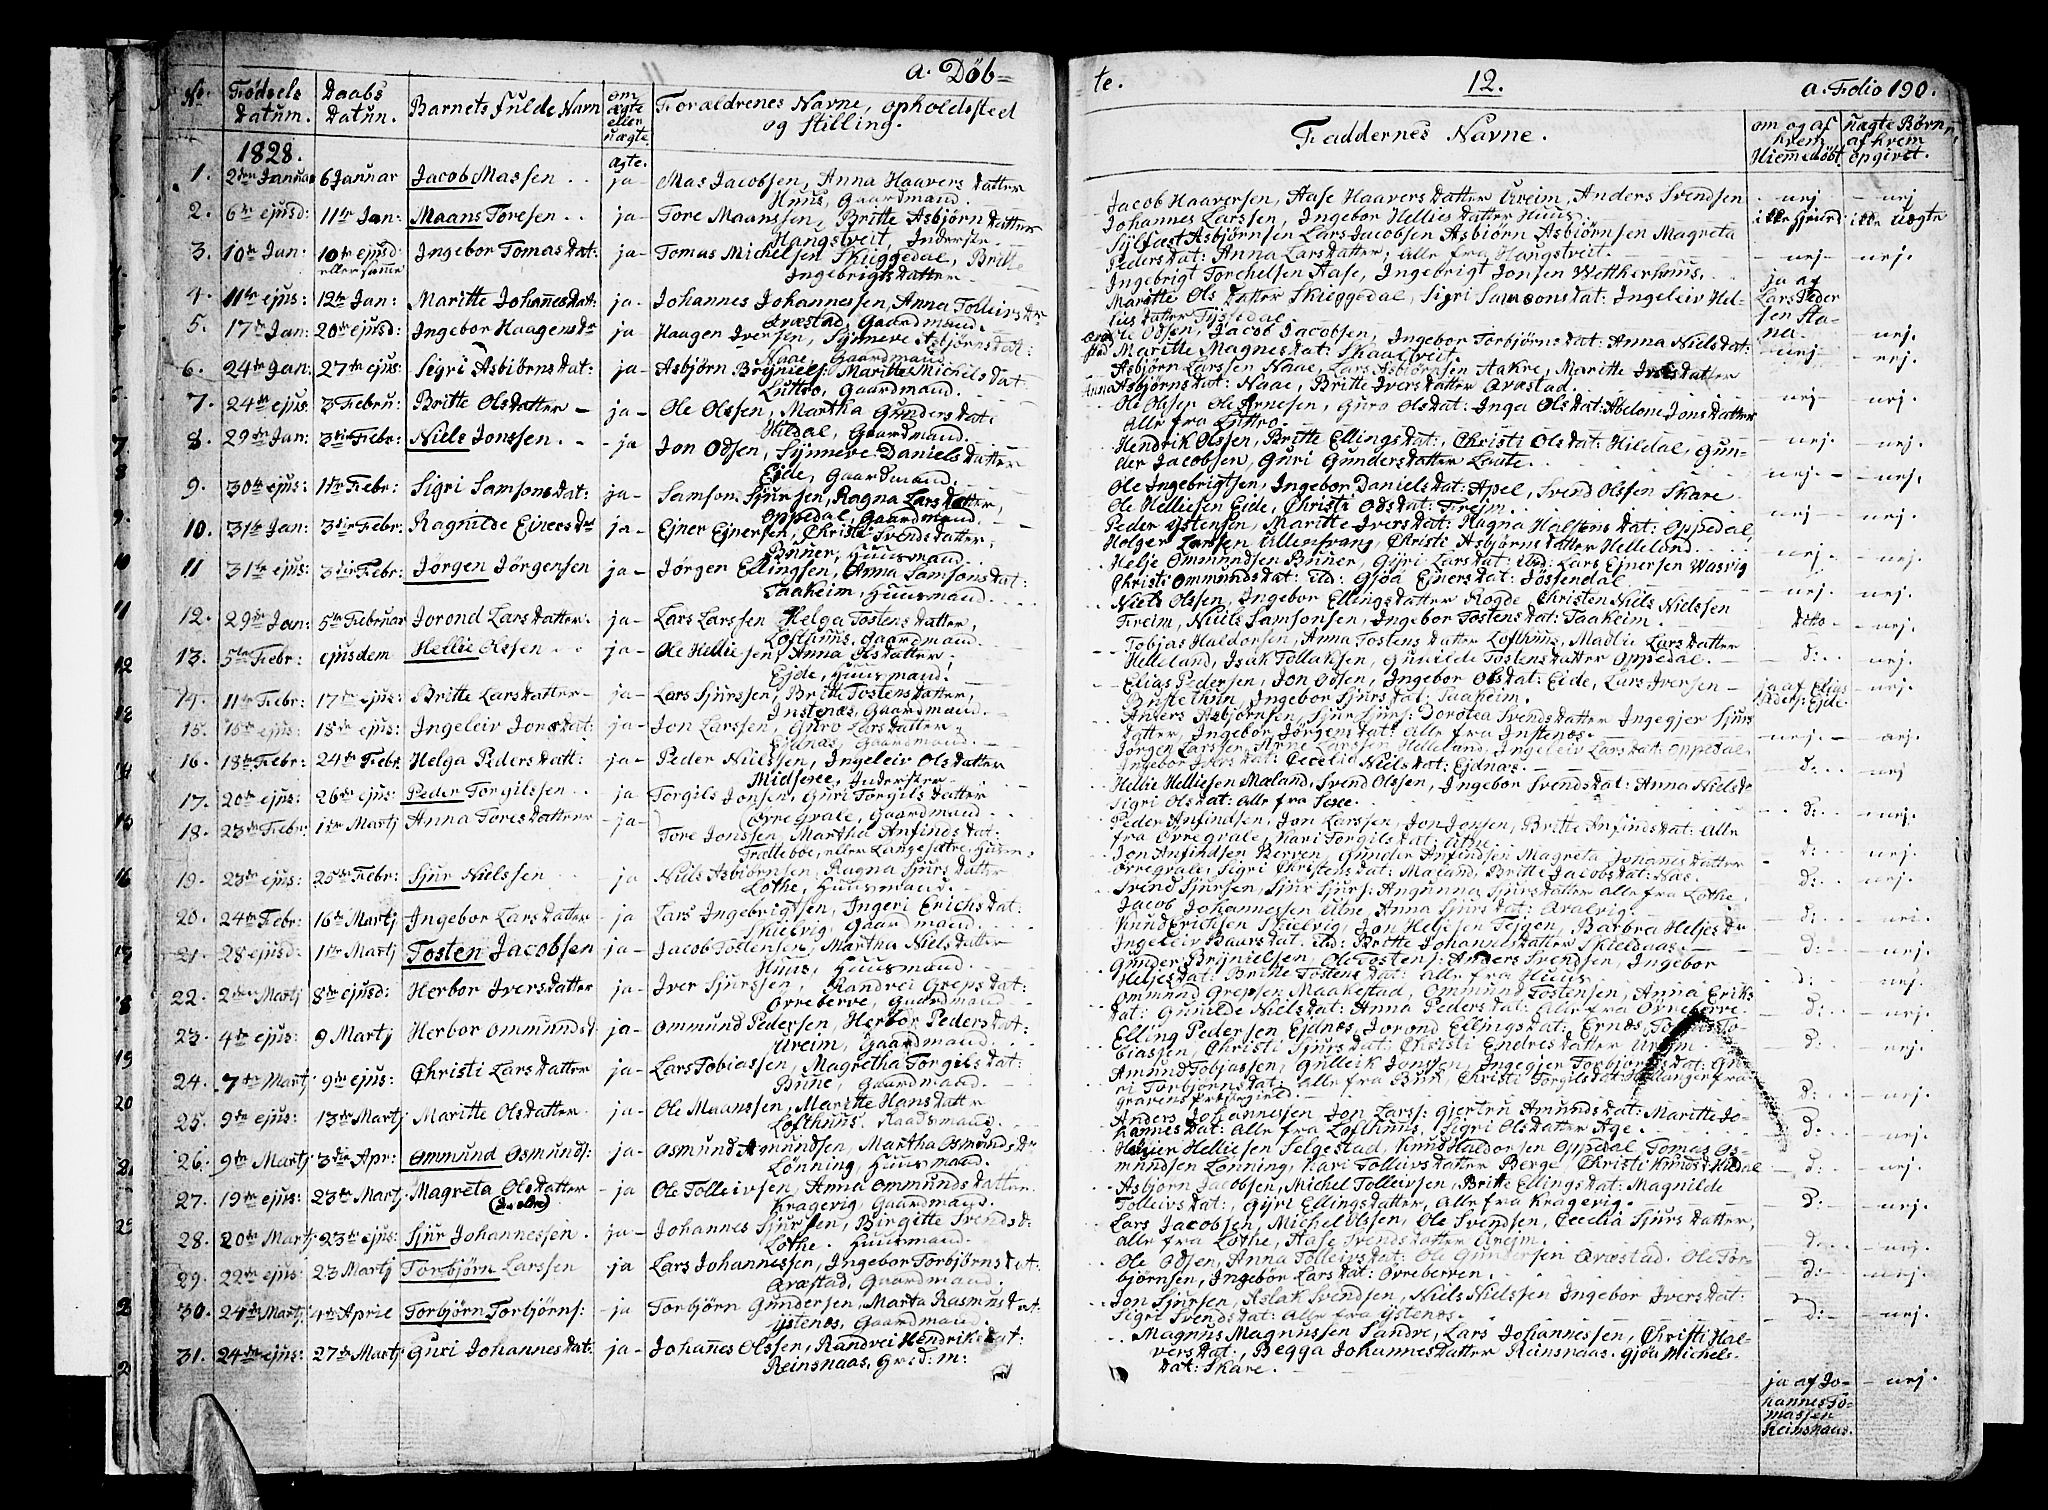 a. Døb=
No. Fødsels datum. Daabs datum. Barnets fulde Navn om ægte eller uægte. Forældrenes Navne, opholdssted og Stilling.
1828. ægte.
1. 2den Januar 6 Januar Jacob Massen ja Mas Jacobsen, Anna Haavers Datter
Huus, Gaardmand.
2. 6te ejusd: 11te Jan: Maans Toresen ja Tore Maanssen, Britte Asbjørn Datter
Hangstveit, Inderste.
3. 10de Jan: 10de ejusd: eller samme Ingebor Tomas Dat: ja Tomas Michelsen Skeggedal, Britte
Ingebrigts Datter
4. 11te ejus: 12te Jan: Maritte Johannes Dat: ja Johannes Johannessen, Anna Tolleivs Dr
Aræstad, Gaardmand.
5. 17de Jan: 20de ejusd: Ingebor Haagens Dr ja Haagen Iversen, Synneve Asbjørns Dat:
Naae, Gaardmand.
6. 24de Jan: 27de ejus: Sigri Asbiørns Dat: ja Asbjørn Bryniels: Maritte Michels Dat:
Lutto, Gaardmand.
7. 24de ejus: 3 Febru: Britte Ols Datter ja Ole Olssen, Martha Gunders Dat:
Hildal, Gaardmand.
8. 29de Jan: 3die Febr: Niels Jonssen ja Jon Odsen, Synneve Daniels Datter
Eide, Gaardmand.
9. 30te ejus: 1te Febr: Sigri Samsons Dat: ja Samson Sjursen, Ragna Lars Datter,
Oppedal, Gaardmand.
10. 31te Jan: 3die Febr: Ragnilde Einers Dr ja Ejner Ejnersen, Christi Svends Datter,
Buuer, Huusmand.
11 31te ejus: 3die Febr: Jørgen Jørgensen ja Jørgen Ellingsen, Anna Samsons Dat:
Taaheim, Huusmand.
12. 29de Jan: 5te Februar Jorond Lars Datter ja Lars Larssen Helga Tostens Datter,
Lofthuus, Gaardmand.
13. 5te Febr: ejusdem Hellie Olssen ja Ole Helliesen, Anna Ols Datter
Ejde, Huusmand.
14. 11te Febr: 17de ejus: Britte Lars Datter ja Lars Sjurssen, Britte Tostens Datter,
Instenæs, Gaardmand.
15. 16de ejus: 18de ejus: Ingeleiv Jons Dat: ja Jon Larssen, Guro Lars Datter
Ejdnæs, Gaardmand.
16. 18de Febr: 24de Febr Helga Peders Datt: ja Peder Nielssen, Ingeleiv Ols Datter
Midsexe, Inderster
17. 20de ejus: 26de ejus: Peder Torgilssen ja Torgils Jonsen, Guri Torgils Datter
Øvre Grate, Gaardmand.
18. 23de Febr: 1te Martj Anna Tores Datter ja Tore Jonssen, Martha Anfinds Dat:
Trætteboe, eller Langesætre, Huusm.
19. 23de ejus: 25de Febr: Sjur Nielssen ja Niels Asbiørnsen, Ragna Sjurs Datter
Lothe, Huusmand.
20. 24de Febr: 16de Martj Ingebor Lars Datter ja Lars Ingebrigtsen, Ingeri Erichs Dat:
Skielvig, Gaardmand.
21. 28 ejusd: 1te Martj Tosten Jacobsen ja Jacob Tostensen, Martha Niels Datter
Huus, Huusmand.
22. 2den Martj 8de ejusd: Herbor Ivers Datter ja Iver Sjurssen, Randvei Greps Dat:
Øvreberve, Gaardmand
23. 4de ejus: 9 Martj Herbor Ommunds d: ja Ommund Pedersen, Herbor Peders Dat:
Ureim, Gaardmand.
24. 7de Martj 9de ejus: Christi Lars Datter ja Lars Tobiassen, Magretha Torgils Dat:
Bune, Gaardmand.
25. 9de ejus: 13de Martj Maritte Ols Datter ja Ole Maanssen, Maritte Hans Datter
Lofthuus. Raadsmand.
26. 9de Martj 3die Apr: Ommund Osmunds: ja Osmund Amundsen, Martha Osmunds Dr
Lønning, Huusmand.
27. 19de ejus: 23de Martj Magreta Ols Datter ja Ole Tolleivsen, Anna Ommunds Datter
Kragevig, Gaardmand.
28. 20de Martj 23de ejus: Sjur Johannessen ja Johannes Sjursen, Birgitte Svends D:
Lothe. Huusmand.
29. 22de ejus: 23 Martj Torbjørn Larssen ja Lars Johannessen, Ingebor Torbjørns Dat:
Aræstad, Gaardmand.
30. 24de Martj 4de April Torbjørn Torbjørns: ja Torbjørn Gundersen, Marta Rasmus Dat:
Ystenæs, Gaardmand.
31. 24de ejus: 27de Martj Guri Johannes Dat: ja Johannes Olssen, Randvei Hendriks Dat:
Reinsnaas, Grd: m:
te. 12. a. Folio 190.
Faddernes Navne. om og af hvem Hiemmedøbt uægte Børn, af hvem opgivet.
Jacob Haaversen, Aase Haavers Datter Ureim, Anders Svendsen nej nej
Johannes Larssen, Ingebor Hellies Datter Huus.
Sylfast Asbjørnsen Lars Jacobsen Asbiørn Asbiørnsen Magreta
Peders Dat: Anna Lars Datter, alle fra Hangstveit. nej nej.
Ingebrigt Torchelsen Aase, Ingebrigt Jonsen
Maritte Ols Datter Skeggedal, Sigri Samsons Dat: Ingeleiv Hel-
lies Datter Tyssedal. ja af Lars Peder sen
Odsen, Jacob Jacobsen, Ingebor Torbjørns Dat: Anna Niels Dat:
Maritte Magnes Dat: nej nej.
Asbjørn Larssen Naae, Lars Asbiørnsen Aakre, Maritte Ivers Datter
Anna Asbjørns Dat: Naae, Britte Ivers Datter Aræstad. nej nej.
Ole Olsen Ole Arnesen, Guro Ols Dat: Inga Ols Dat: Abelone Jons Datter
Alle fra Lutto.
Hendrik Olssen, Britte Ellings Dat:, Christi Ols Dat: Hildal, Gun- nej. nej.
der Jacobsen, Guri Gunders Datter Leute.
Ole Ingebrigtsen, Ingebor Daniels Dat: Apel, Svend Olssen Skare nej nej.
Ole Helliesen Eide, Christi Ods Dat: Freim.
Peder Ystensen, Maritte Ivers Dat: Ragna Halstens Dat: Oppedal, nej nej.
Holger Larsen Ullensvang, Christi Asbjørns Datter Helleland.
Helje Ommundsen Buuer, Gyri Lars Dat: ibd: Lars Ejnersen Wasvig nej. nej.
Christi Ommunds Dat: ibd: Gjøa Ejners Dat: Jøssendal
Niels Olssen, Ingebor Ellings Datter Rogde Christen Niels Nielssen nej. nej.
Freim, Niels Samsonsen, Ingebor Tostens Dat: Taaheim.
Tobias Haldorsen, Anna Tostens Datter Lofthuus, Madlie Lars Datter Ditto nej.
Helleland, Isak Tollaksen, Gunilde Tostens Datter Oppedal. d: nej.
Elias Pedersen, Jon Odsen, Ingebor Ols Dat: Eide, Lars Iversen ja af Elias Peders: Ejde nej.
Ingebor Sjurs Dat: Taaheim.
Anders Asbjørnsen, Sjur Sjurs: Dorotea Svends Datter Ingegjer Sjurs
Datter, Ingebor Jørgens Dat: alle fra Instenæs. nej.
Jørgen Larssen, Arne Larssen Helleland, Ingeleiv Lars Dat: Oppedal.
Ingebor Ivers Dat: Cecelia Niels Dat: Ejdnæs. d: nej
Hellie Helliesen Mæland, Svend Olssen, Ingebor Svends Dat: Anna Niels Dr
Sigri Ols Dat: alle fra Sexe. d: nej.
Peder Anfindsen, Jon Larssen, Jon Jonsen, Britte Anfinds Dat: Alle
fra Øvregrate, Kari Torgils Dat: Utne. d: nej.
Jon Anfindsen Berven, Gunder Anfindsen Magreta Johannes Datter
Øvregrate, Sigri Christens Dat: Mæland, Britte Jacobs Dat: Naa. d: nej.
Svend Sjursen, Sjur Sjurs: Angunna Sjurs Datter alle fra Lothe.
Jacob Johannessen Utne, Anna Sjurs Dat: d:
Knud Erichsen Skielvig, Jon Heljesen Tejgen, Barbra Heljes Dr
Ingeleiv Baars Dat. ibd: Britte Johannes Datter Skieldaas. d: nej.
Gunder Brynielsen, Ole Tostens: Anders Svendsen, Ingebor
Heljes Dat: Britte Tostens Dat: alle fra Huus. d: nej.
Ommund Grepsen Maakestad, Ommund Tostensen, Anna Eriks
Dat: Gunilde Niels Dat: Anna Peders Dat: alle fra Øvreberve. d: nej.
Elling Pedersen Ejdnæs, Jorond Ellings Dat: Ernæs, To-
biassen, Christi Sjurs Dat: Christi Endres Datter Ureim. d: nej.
Amund Tobiassen, Gulleik Jonsen, Ingegjer Torbjørns Dat: Gu-
ri Torbjørns Dat: alle fra Bun, Christi Torgils Dat:
gravens Prestegield. d: nej.
Anders Johannessen Jon Larss: Gjertru Amunds Dat: Maritte Jo-
hannes Dat: alle fra Lofthuus, Sigri Ols Datter Age. d: nej.
Helliesen Selgestad, Knud Haldorsen Oppedal, Tomas Os-
mundsen Lønning, Kari Tolleivs Datter Berge, Christi Knuds Dr Hildal d: nej.
Asbjørn Jacobsen, Michel Tolleivsen, Britte Ellings Dat: Magnilde
Tolleivs Dat:, Gyri Ellings Datter, alle fra Kragevig. d: nej.
Lars Jacobsen, Michel Olssen, Ole Svendsen, Cecelia Sjurs Datter,
alle fra Lothe, Aase Svends Datter Ureim. nej.
Ole Odsen, Anna Tolleivs Dat: Ole Gundersen Aræstad. Ole Tor-
bjørnsen, Ingebor Lars Dat: Øvreberven. d: nej.
Jon Sjursen, Aslak Svendsen, Niels Nielssen Ingebor Ivers Dat:
Sigri Svends Dat: alle fra Ystenæs. d: nej.
Magnus Magnussen Sandre, Lars Johannessen, Christi Hal-
vers Dat:, Begga Johannes Datter Reinsnaas. Gjøa Michels-
Dat: Skare.
ja af Jo- nej.
hannes To-
massen
Reinsnaas.